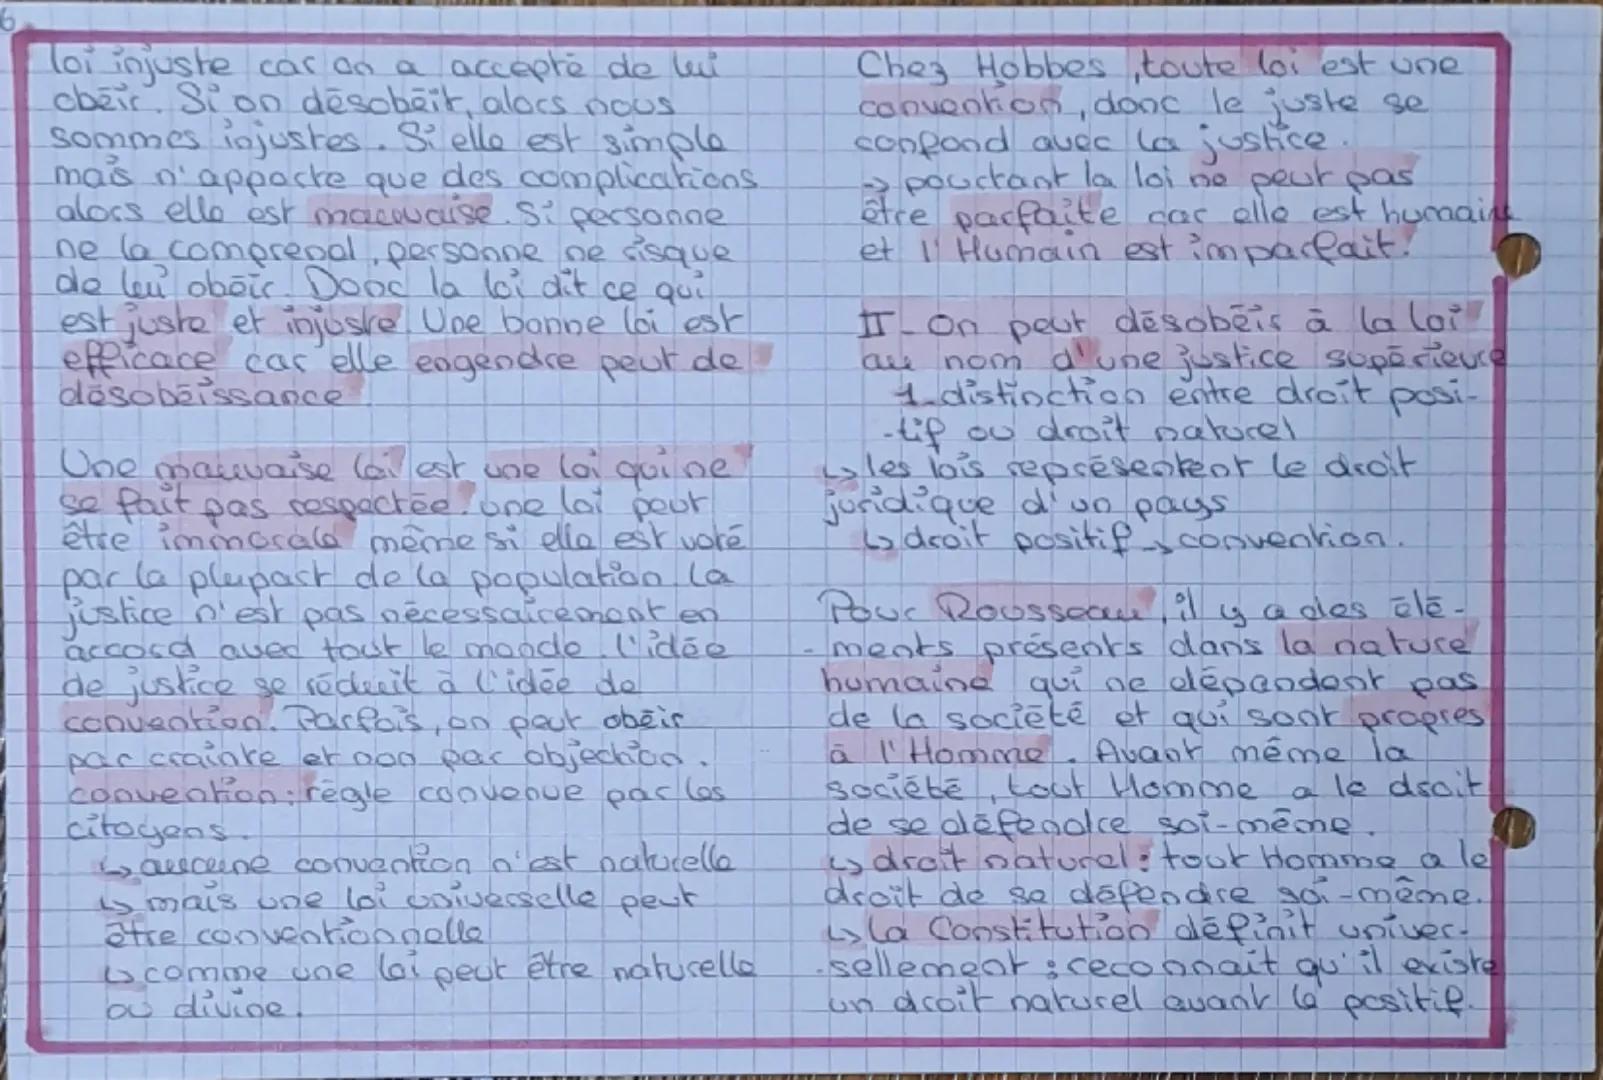 6
loi injuste car on a accepté de lui
obéir. Si on désobéit, alors nous
sommes injustes. Si elle est simple
mais n'apporte que des complications
alors elle est mauvaise. Si personne
ne la comprend, personne ne risque
de lui obéir. Donc la loi dit ce qui
est juste et injuste. Une bonne loi est
efficace car elle engendre peut de
désobéissance
Une mauvaise loi est une loi qui ne
se fait pas respectée. une loi peut
être immorale même si elle est voté
par la plupart de la population. La
justice n'est pas nécessairement en
accord avec tout le monde. l'idée
de justice se réduit à l'idée de
convention. Parfois, on peut obéir
par crainte et non par objection.
convention : règle convenue par les
citoyens.
↳ aucune convention n'est naturelle
↳ mais une loi universelle peut
être conventionnelle
↳ comme une loi peut être naturelle
ou divine.
Chez Hobbes, toute loi est une
convention, donc le juste se
confond avec la justice.
→ pourtant la loi ne peut pas
être parfaite car elle est humaine
et l'Humain est imparfait.
II - On peut désobéir à la loi
au nom d'une justice supérieure
1- distinction entre droit posi-
-tif ou droit naturel
↳ les lois représentent le droit
juridique d'un pays
↳ droit positif → convention.
Pour Rousseau, il y a des élé-
-ments présents dans la nature
humaine qui ne dépendent pas
de la société et qui sont propres
à l'Homme. Avant même la
société, tout Homme a le droit
de se défendre soi-même.
↳ droit naturel : tout Homme a le
droit de se défendre soi-même.
↳ la Constitution définit univer-
-sellement : reconnait qu'il existe
un droit naturel avant le positif.